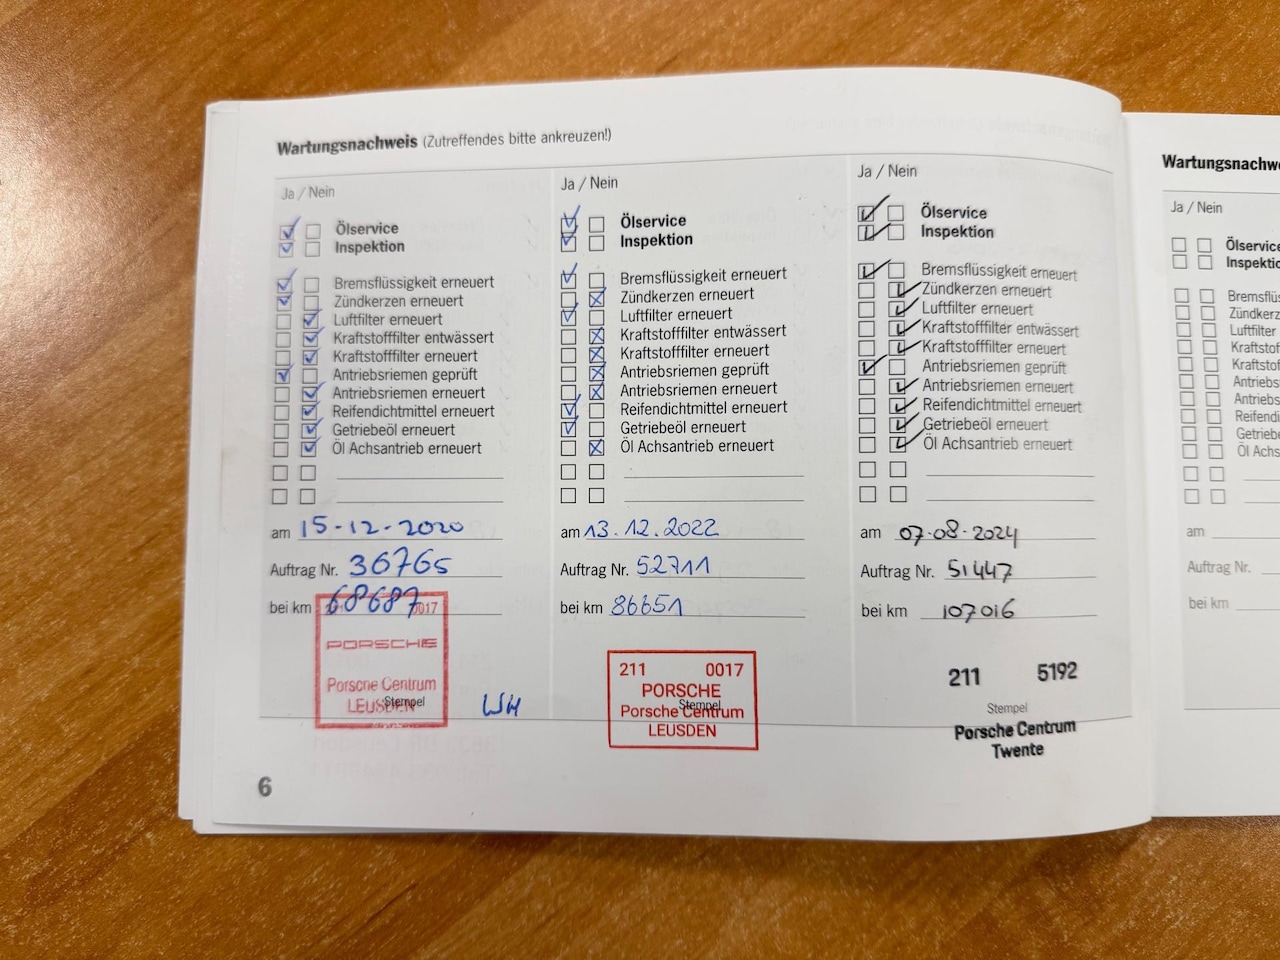 Wartungsnachweis (Zutreffendes bitte ankreuzen!)
Ja / Nein
Ölservice
Inspektion
Bremsflüssigkeit erneuert
Zündkerzen erneuert
Luftfilter erneuert
Kraftstofffilter entwässert
Kraftstofffilter erneuert
Antriebsriemen geprüft
Antriebsriemen erneuert
Reifendichtmittel erneuert
Getriebeöl erneuert
Öl Achsantrieb erneuert
am 15-12-2020
Auftrag Nr. 36765
bei km 68687
0017
PORSCHE
Porsche Centrum
LEUSDEN
Stempel
WH
Ja / Nein
Ölservice
Inspektion
Bremsflüssigkeit erneuert
Zündkerzen erneuert
Luftfilter erneuert
Kraftstofffilter entwässert
Kraftstofffilter erneuert
Antriebsriemen geprüft
Antriebsriemen erneuert
Reifendichtmittel erneuert
Getriebeöl erneuert
Öl Achsantrieb erneuert
am 13.12.2022
Auftrag Nr. 52711
bei km 86651
211 0017
PORSCHE
Stempel
Porsche Centrum
LEUSDEN
Ja / Nein
Ölservice
Inspektion
Bremsflüssigkeit erneuert
Zündkerzen erneuert
Luftfilter erneuert
Kraftstofffilter entwässert
Kraftstofffilter erneuert
Antriebsriemen geprüft
Antriebsriemen erneuert
Reifendichtmittel erneuert
Getriebeöl erneuert
Öl Achsantrieb erneuert
am 07-08-2024
Auftrag Nr. 51447
bei km 107016
211 5192
Stempel
Porsche Centrum
Twente
6
Wartungsnachwe
Ja / Nein
Ölservice
Inspektio
Bremsflüs
Zündkerz
Luftfilter
Kraftstof
Kraftstof
Antriebs
Antriebs
Reifendi
Getriebe
Öl Achs
am
Auftrag Nr.
bei km